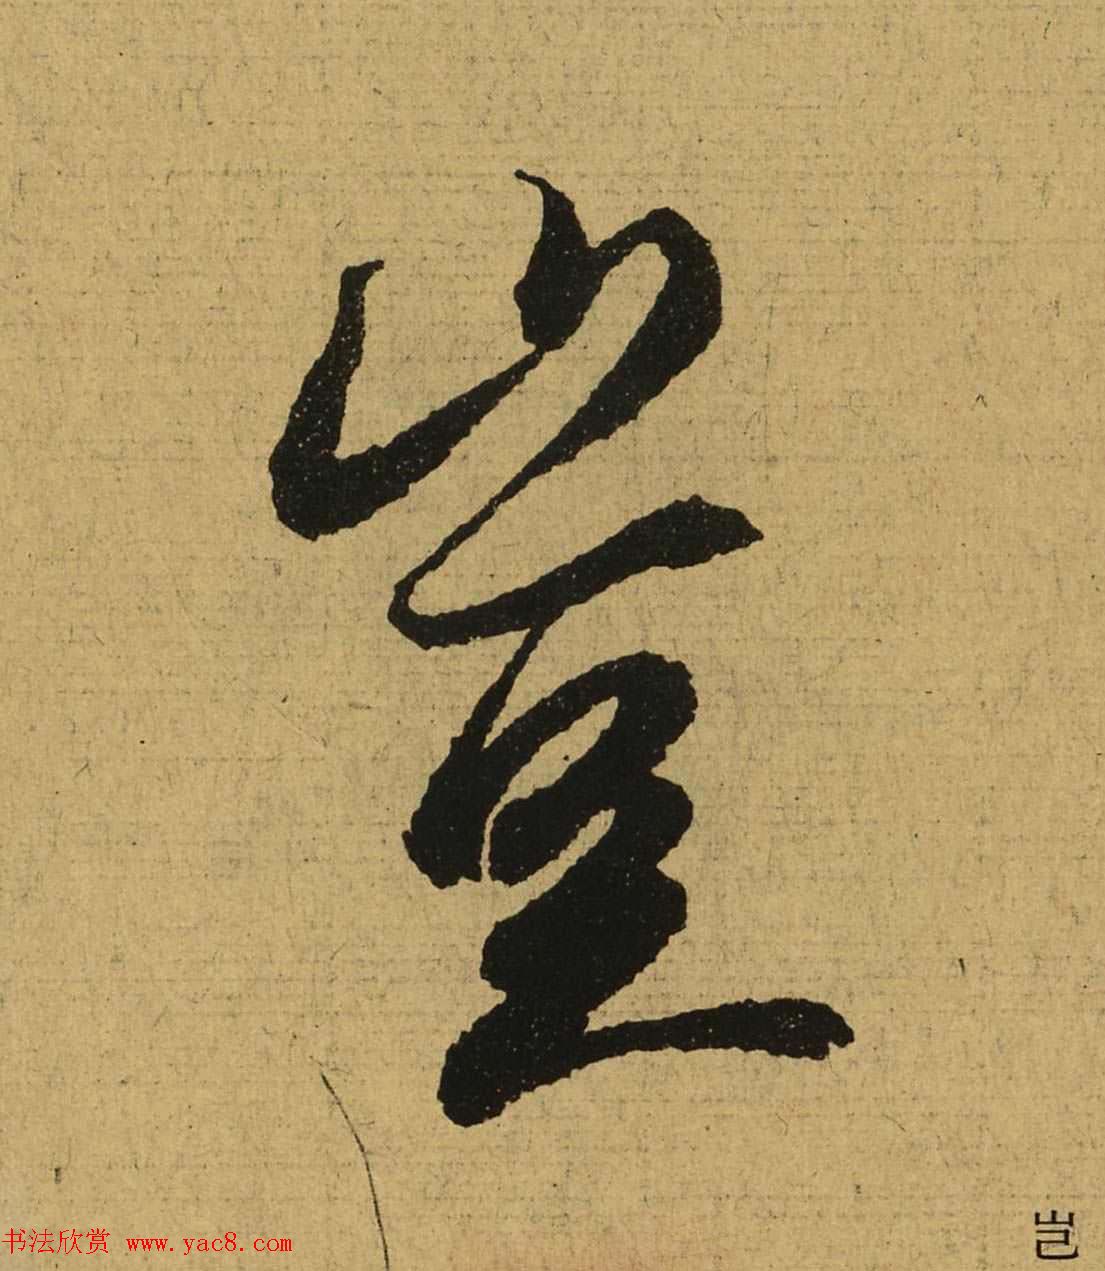 豈
岂
书法欣赏 www.yac8.com